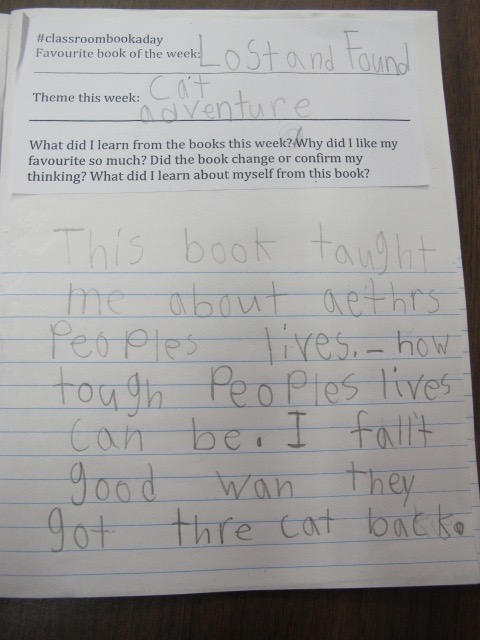 #classroombookaday
Favourite book of the week: Lost and Found
Theme this week: Cat
adventure
What did I learn from the books this week? Why did I like my
favourite so much? Did the book change or confirm my
thinking? What did I learn about myself from this book?
This book taught
me about aethrs
Peoples lives. - how
tough Peoples lives
can be. I fallt
good wan they
got thre cat back.